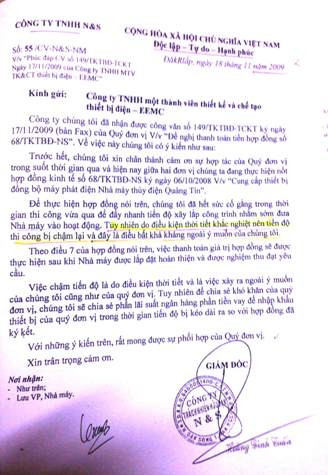 CÔNG TY TNHH N&S
CỘNG HÒA XÃ HỘI CHỦ NGHĨA VIỆT NAM
Độc lập - Tự do - Hạnh phúc
Số: 55 /CV-N&S-NM
ĐăkRlấp, ngày 18 tháng 11 năm 2009
V/v "Phúc đáp CV số 149/TKTBĐ-TCKT
Ngày 17/11/2009 của Công ty TNHH MTV
TK&CT thiết bị điện – EEMC"
Kính gửi: Công ty TNHH một thành viên thiết kế và chế tạo
thiết bị điện – EEMC
Công ty chúng tôi đã nhận được công văn số 149/TKTBĐ-TCKT ký ngày
17/11/2009 (bản Fax) của Quý đơn vị V/v "Đề nghị thanh toán tiền hợp đồng số
68/TKTBĐ-NS". Về việc này chúng tôi có ý kiến như sau:
Trước hết, chúng tôi xin chân thành cám ơn sự hợp tác của Quý đơn vị
trong suốt thời gian qua và hiện nay giữa hai đơn vị chúng ta đang thực hiện nốt
hợp đồng kinh tế số 68/TKTBĐ-NS ký ngày 06/10/2008 V/v "Cung cấp thiết bị
đồng bộ máy phát điện Nhà máy thủy điện Quảng Tín".
Để thực hiện hợp đồng nói trên, chúng tôi đã hết sức cố gắng trong thời
gian thi công vừa qua để đẩy nhanh tiến độ xây lắp công trình nhằm sớm đưa
Nhà máy vào hoạt động. Tuy nhiên do điều kiện thời tiết khắc nghiệt nên tiến độ
thi công bị chậm lại và đây là điều bất khả kháng ngoài ý muốn của chúng tôi.
Theo điều 7 của hợp đồng nói trên, việc thanh toán giá trị hợp đồng sẽ được
thực hiện sau khi Nhà máy được lắp đặt hoàn thiện và được nghiệm thu đạt yêu
cầu.
Việc chậm tiến độ là do điều kiện thời tiết và là việc xảy ra ngoài ý muốn
của chúng tôi cũng như của quý đơn vị. Tuy nhiên để chia sẻ khó khăn của quý
đơn vị, chúng tôi sẽ chia sẻ phần lãi suất ngân hàng phần tiền vay để nhập khẩu
thiết bị của quý đơn vị trong thời gian tiến độ bị kéo dài ra so với hợp đồng đã
ký kết.
Với những ý kiến trên, rất mong được sự phối hợp của Quý đơn vị.
Xin trân trọng cám ơn.
Nơi nhận:
- Như trên;
- Lưu VP, Nhà máy.
GIÁM ĐỐC
CÔNG TY
N & S
Hoàng Đình Tuấn